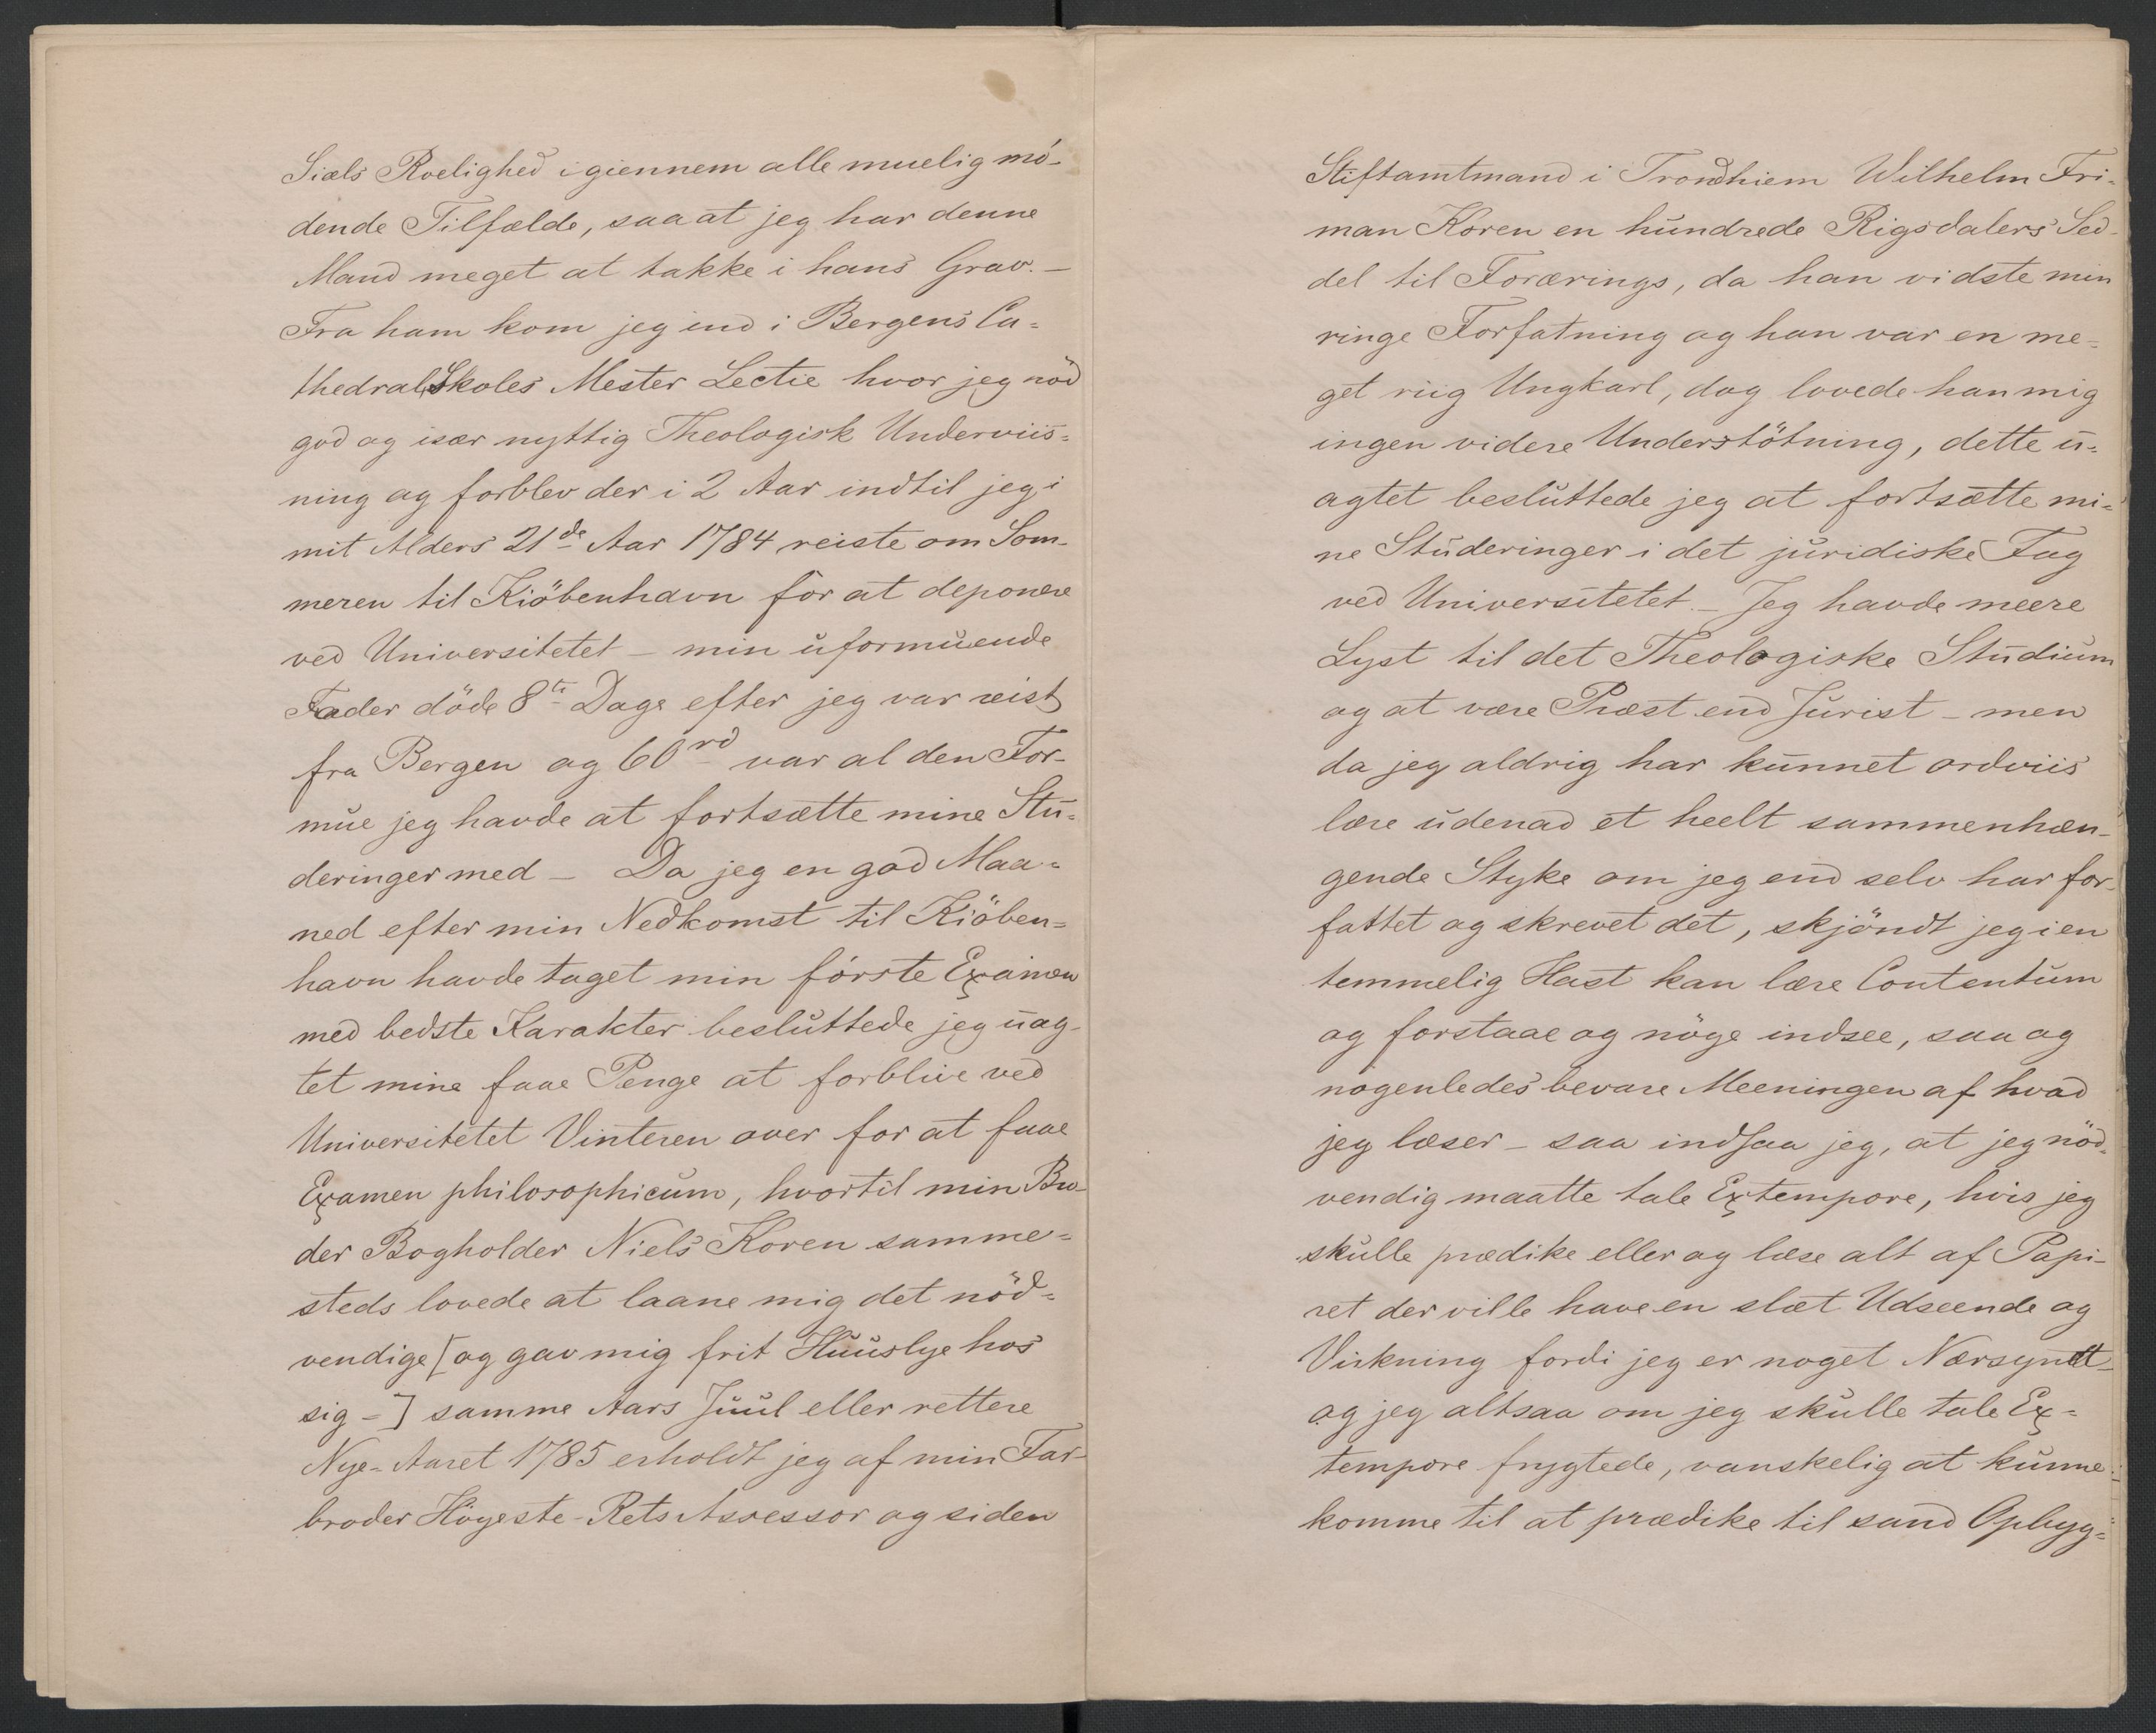 Siæls Roelighed igiennem alle muelig mö-
dende Tilfælde, saa at jeg har denne
Mand meget at takke i hans Grav. —
Fra ham kom jeg ind i Bergens Ca=
thedralSkoles Mester Lectie hvor jeg nöd
god og især nyttig Theologisk Underviis=
ning og forblev der i 2 Aar indtil jeg i
mit Alders 21de Aar 1784 reiste om Som-
meren til Kiöbenhavn for at deponere
ved Universitetet — min uformuende
Fader döde 8te Dage efter jeg var reist
fra Bergen og 60 rd var al den For-
mue jeg havde at fortsætte mine Stu=
deringer med — Da jeg en god Maa=
ned efter min Nedkomst til Kiöben=
havn havde taget min förste Examen
med bedste Karakter besluttede jeg uag-
tet mine faae Penge at forblive ved
Universitetet Vinteren over for at faae
Examen philosophicum, hvortil min Bro-
der Bogholder Niels Koren samme=
steds lovede at laane mig det nöd=
vendige [og gav mig frit Huuslye hos
sig =] samme Aars Juul eller rettere
Nye=Aaret 1785 erholdt jeg af min Far-
broder Höyeste-Rets Assessor og siden
Stiftamtmand i Trondhiem Wilhelm Fri-
man Koren en hundrede Rigsdalers Sed-
del til Forærings, da han vidste min
ringe Forfatning og han var en me=
get riig Ungkarl, dog lovede han mig
ingen videre Understötning, dette u=
agtet besluttede jeg at fortsætte mi=
ne Studeringer i det juridiske Fag
ved Universitetet. — Jeg havde meere
Lyst til det Theologiske Studium
og at være Præst end Jurist — men
da jeg aldrig har kunnet ordviis
lære udenad et heelt sammenhæn-
gende Styke om jeg end selv har for-
fattet og skrevet det, skjöndt jeg i en
temmelig Hast kan lære Contentum
og forstaae og nöye indsee, saa og
nogenledes bevare Meeningen af hvad
jeg læser — saa indsaa jeg, at jeg nöd=
vendig maatte tale Extempore, hvis jeg
skulle prædike eller og læse alt af Papi-
ret der ville have en slæt Udseende og
Virkning fordi jeg er noget Nærsyndt —
og jeg altsaa om jeg skulle tale Ex=
tempore frygtede, vanskelig at kunne
komme til at prædike til sand Opbyg=